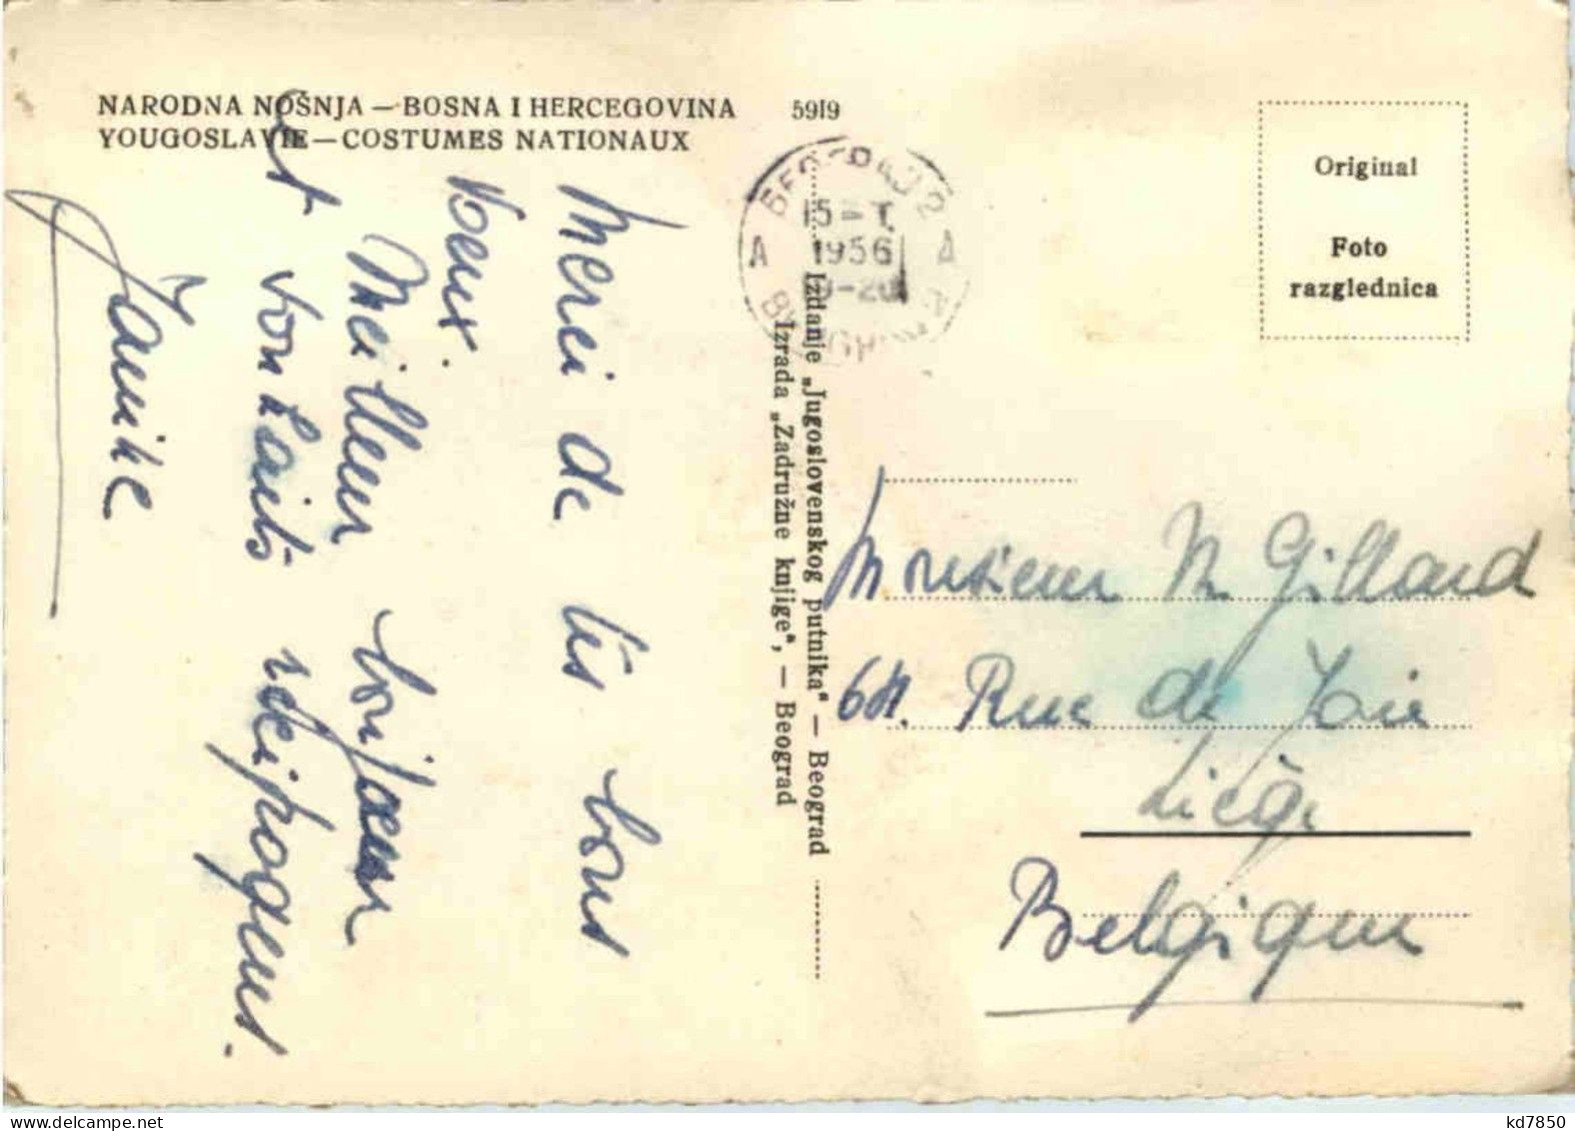 NARODNA NOŠNJA — BOSNA I HERCEGOVINA 5919
YOUGOSLAVIE — COSTUMES NATIONAUX
Original
Foto
razglednica
15 I.
1956
A A
Izdanje „Jugoslovenskog putnika" — Beograd
Izrada „Zadružne knjige", — Beograd
Merci de tes bons
voeux.
Meilleur bonjour
et souhaits réciproques.
Janike
Monsieur M Gillard
Rue de Joie
Liège
Belgique
kd7850